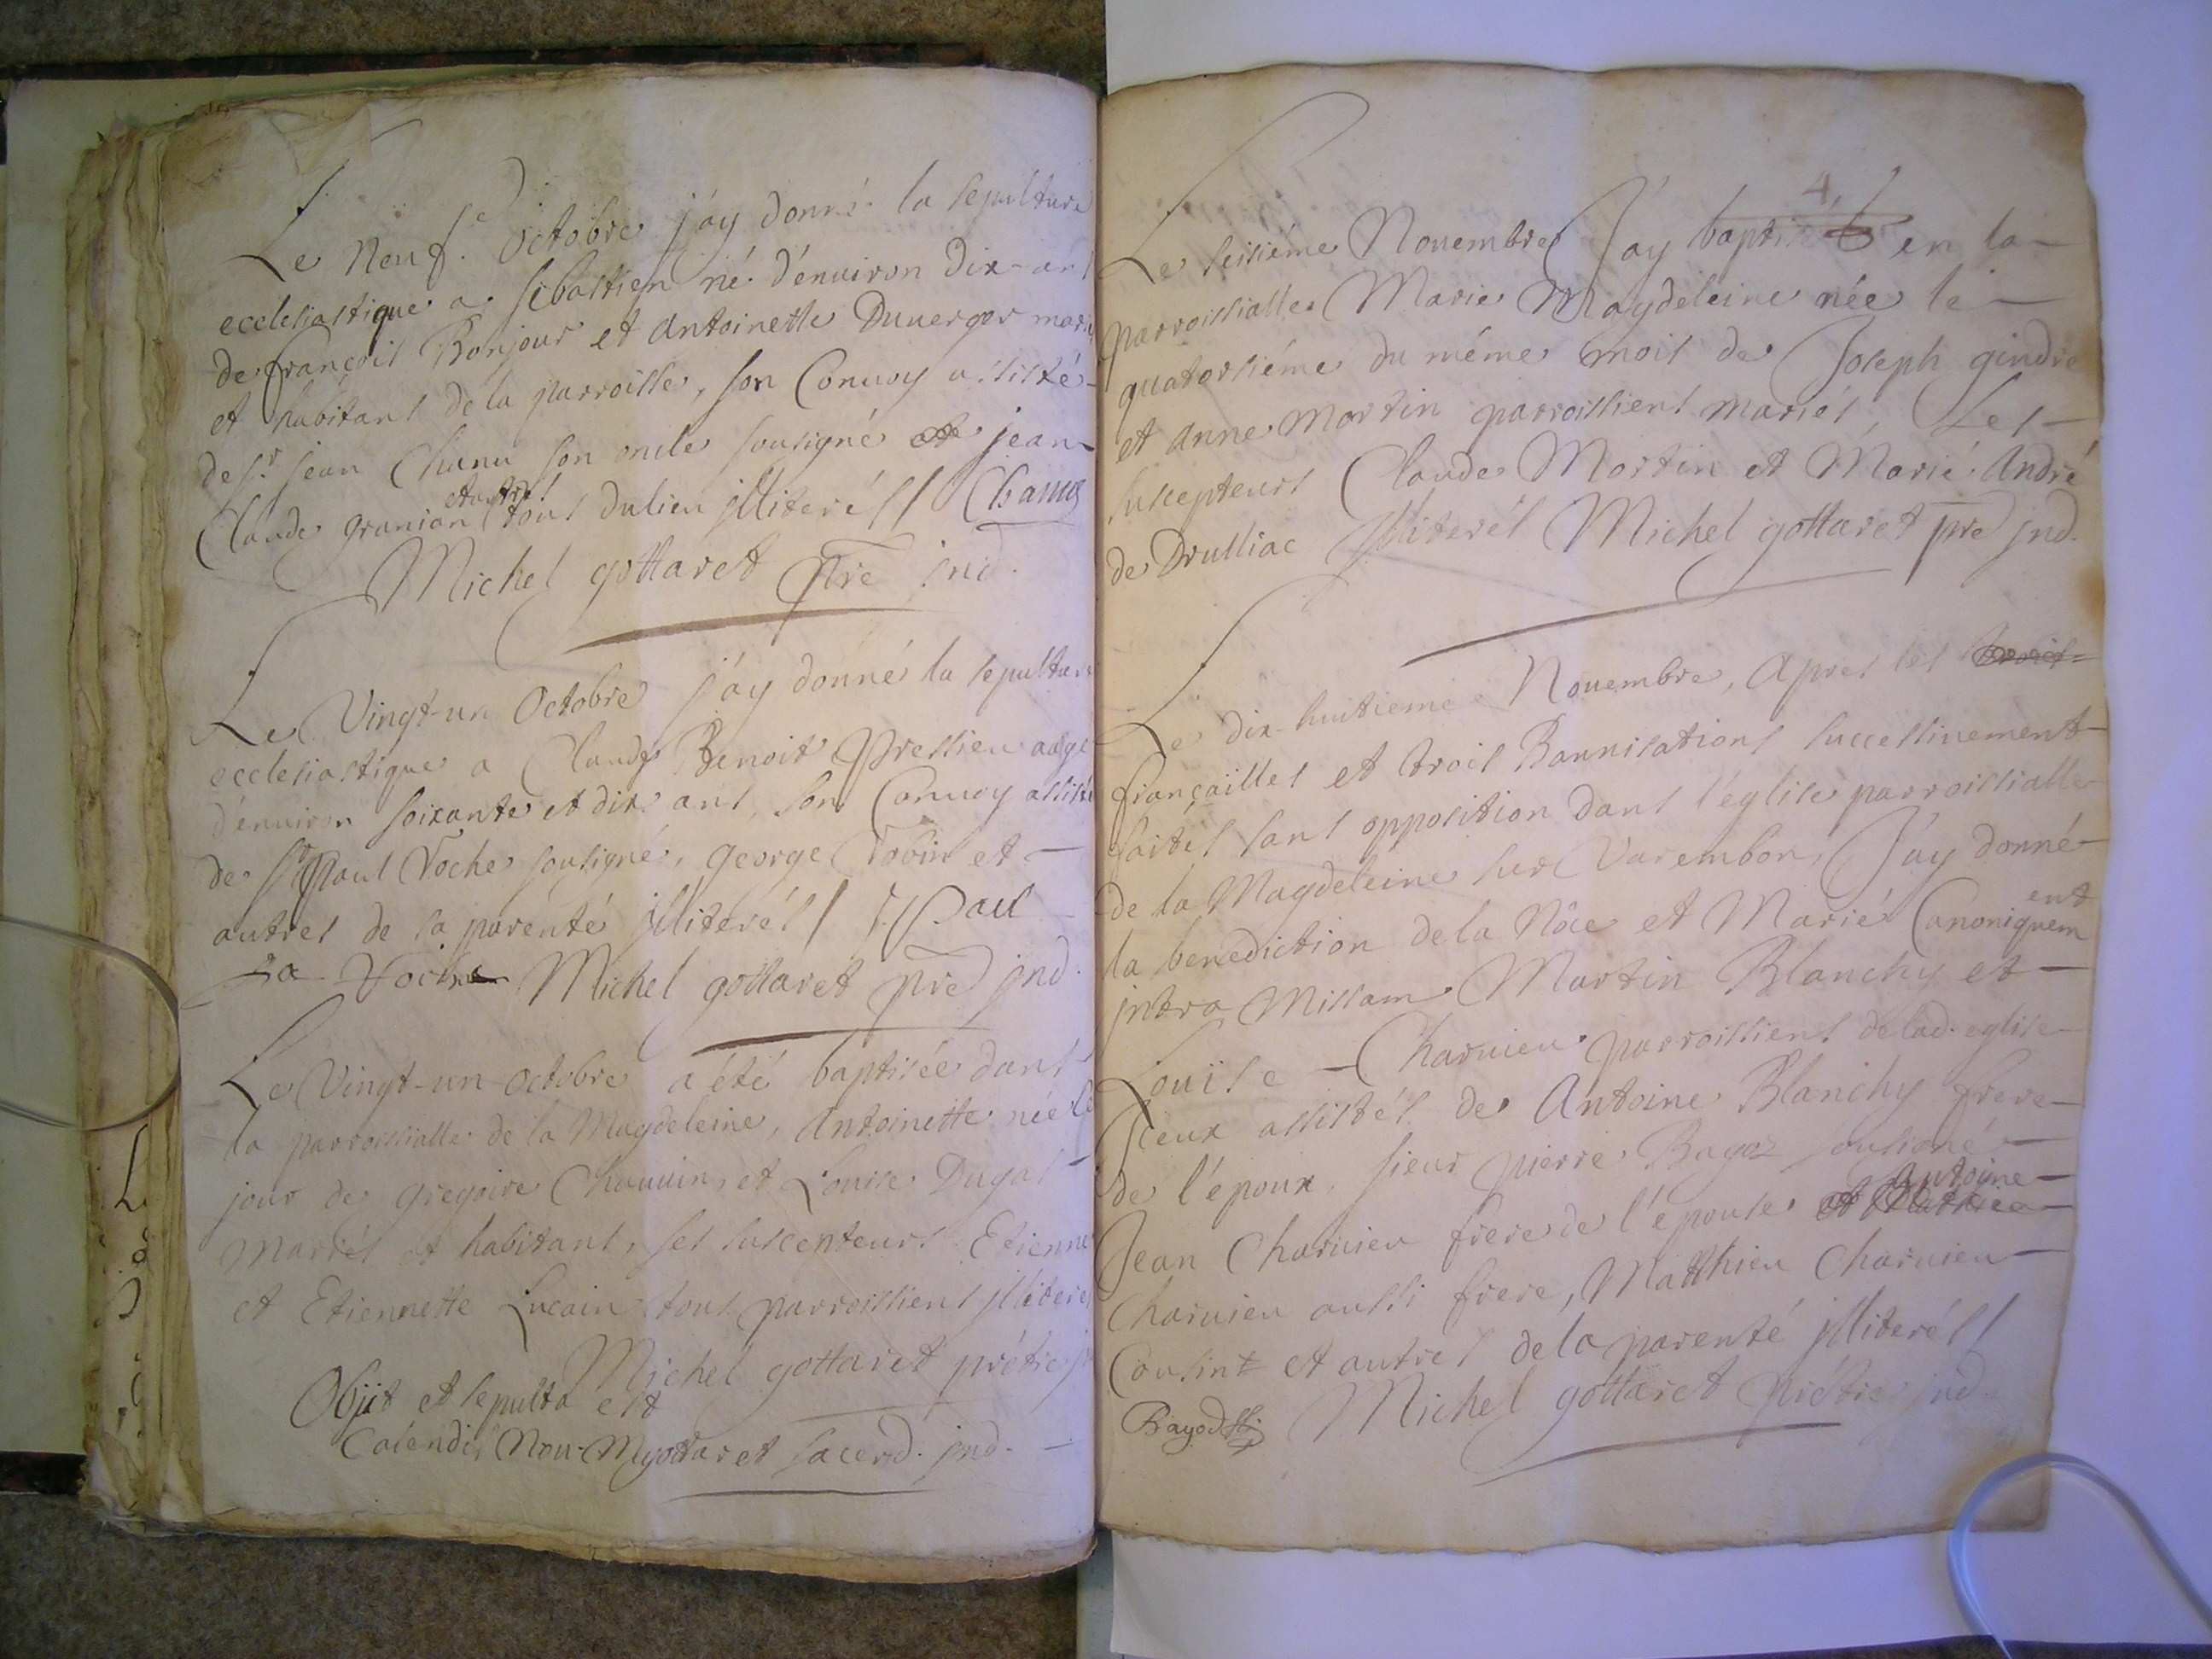 Le Neuf.e Octobre j'ay donné la sepulture
ecclesiastique a Sebastien né d'enuiron dix-ans
de françois Bonjour et Antoinette Duuerger mariés
et habitans de la parroisse, son Conuoy assisté
de Sr. jean Chanu son oncle sousigné jean
Claude granian et autres tous du lieu jlliterés
Michel gottaret pre jnd.
Le Vingt-un Octobre j'ay donné la sepulture
ecclesiastique a Claude Benoit Pressieu aagé
d'enuiron soixante et dix ans, son Conuoy assisté
de Sr Paul Voche sousigné, george Robin et
autres de sa parenté jlliterés / Paul
Michel gottaret pre jnd.
Le Vingt-un Octobre a été baptisée dans
la parroissialle de la Magdeleine, Antoinette née le
jour de gregoire Chauuin, et Louise Dugas
Mariés et habitans, ses suscepteurs Etienne
et Etiennette Lucain tous parroissiens jlliterés
Michel gottaret prétre
Objit et sepulta est
Calendis Nou. Mgottaret sacerd. jnd.
4
Le seisiéme Nouembre J'ay baptisé en la
parroissialle Marie Magdeleine née le
quatorsiéme du méme mois de Joseph gindre
et Anne Martin parroissiens mariés, Les
suscepteurs Claude Martin et Marie André
de Drulliac jlliterés Michel gottaret pre jnd.
Le dix-huitieme Nouembre, Apres les
françailles et trois Bannisations successiuement
faites sans opposition dans l'église parroissialle
de la Magdeleine sur Varembon, J'ay donné
la benediction de la Nôce et Marié Canoniquement
jntra Missam Martin Blanchy et
Louise Charuieu parroissiens de lad. eglise
jceux assistés de Antoine Blanchy frere
de l'époux, sieur pierre Bagoz sousigné
Jean Charuieu frere de l'épouse Antoine
Charuieu aussi frere, Matthieu Charuieu
Cousin et autres de la parenté jlliterés
Michel gottaret prétre jnd.